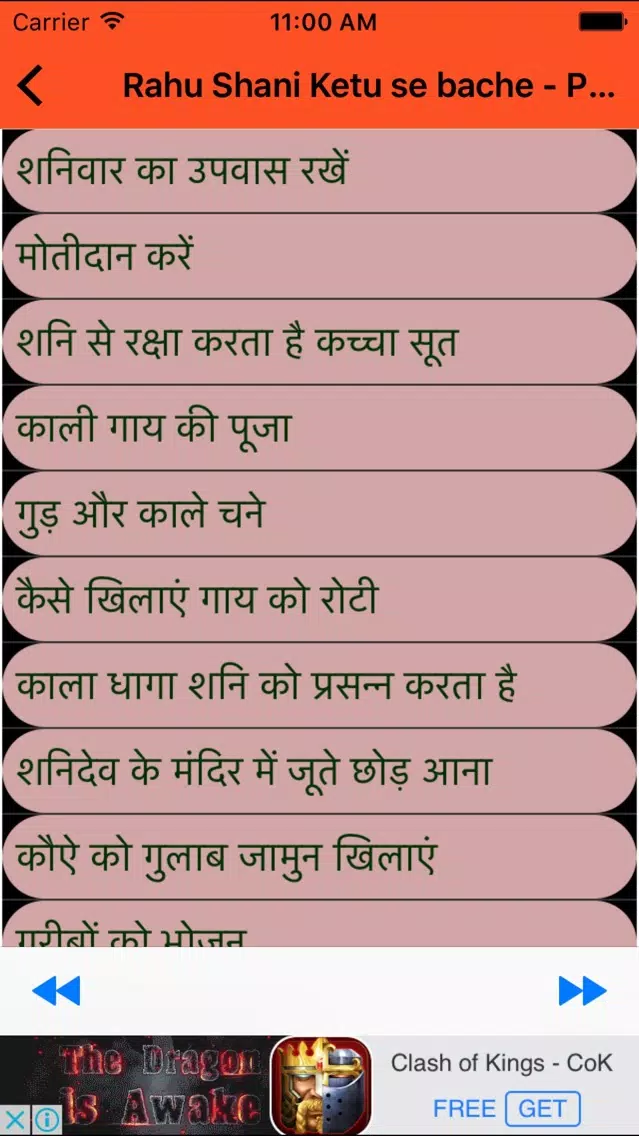 Carrier
11:00 AM
Rahu Shani Ketu se bache - P...
शनिवार का उपवास रखें
मोतीदान करें
शनि से रक्षा करता है कच्चा सूत
काली गाय की पूजा
गुड़ और काले चने
कैसे खिलाएं गाय को रोटी
काला धागा शनि को प्रसन्न करता है
शनिदेव के मंदिर में जूते छोड़ आना
कौऐ को गुलाब जामुन खिलाएं
गरीबों को भोजन
The Dragon
Is Awake
Clash of Kings - CoK
FREE GET